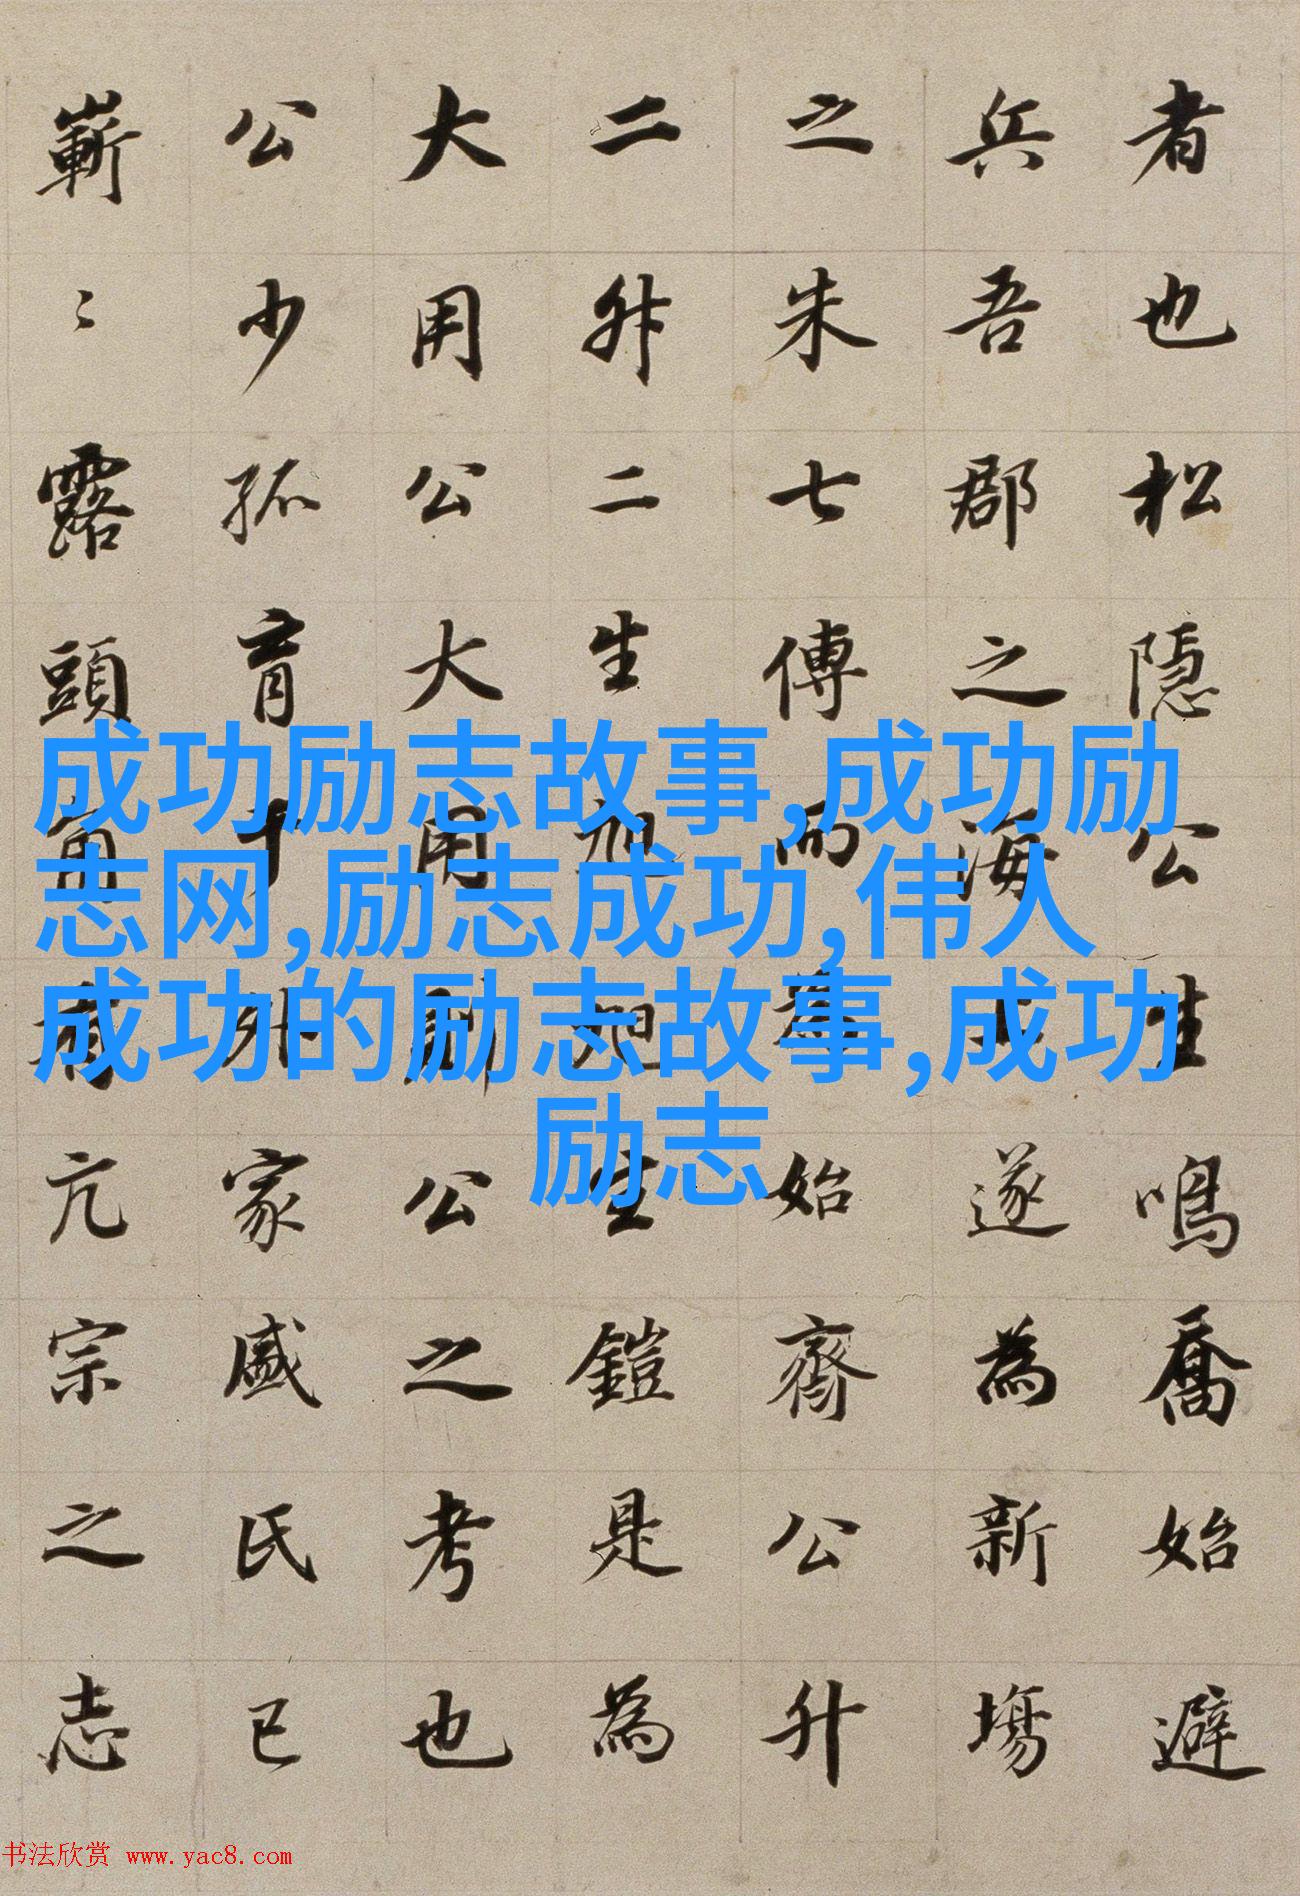 者也松隱公生鳴喬始避
兵吾郡之海上遂為新場
之朱七傳而為始齋公升
二升二生旭旭生鎧是為
大用公大用則公之考也
公少孤育于外家戚氏已
嶄〻露頭角有亢宗之志
成功励志故事,成功励
志网,励志成功,伟人
成功的励志故事,成功
励志
书法欣赏 www.yac8.com